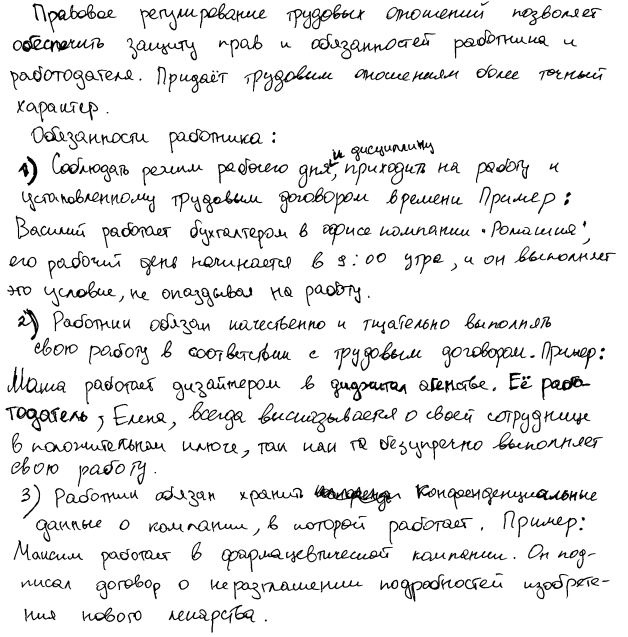 Правовое регулирование трудовых отношений позволяет
обеспечить защиту прав и обязанностей работника и
работодателя. Придаёт трудовым отношениям более точный
характер.
Обязанности работника:
1) Соблюдать режим рабочего дня и дисциплину, приходить на работу к
установленному трудовым договором времени Пример:
Василий работает бухгалтером в офисе компании "Ромашка",
его рабочий день начинается в 9:00 утра, и он выполняет
это условие, не опаздывая на работу.
2) Работник обязан качественно и тщательно выполнять
свою работу в соответствии с трудовым договором. Пример:
Маша работает дизайнером в диджитал агенстве. Её рабо-
тодатель, Елена, всегда высказывается о своей сотруднице
в положительном ключе, так как та безупречно выполняет
свою работу.
3) Работник обязан хранить конфенденциальные
данные о компании, в которой работает. Пример:
Максим работает в фармацевтической компании. Он под-
писал договор о неразглашении подробностей изобрете-
ния нового лекарства.